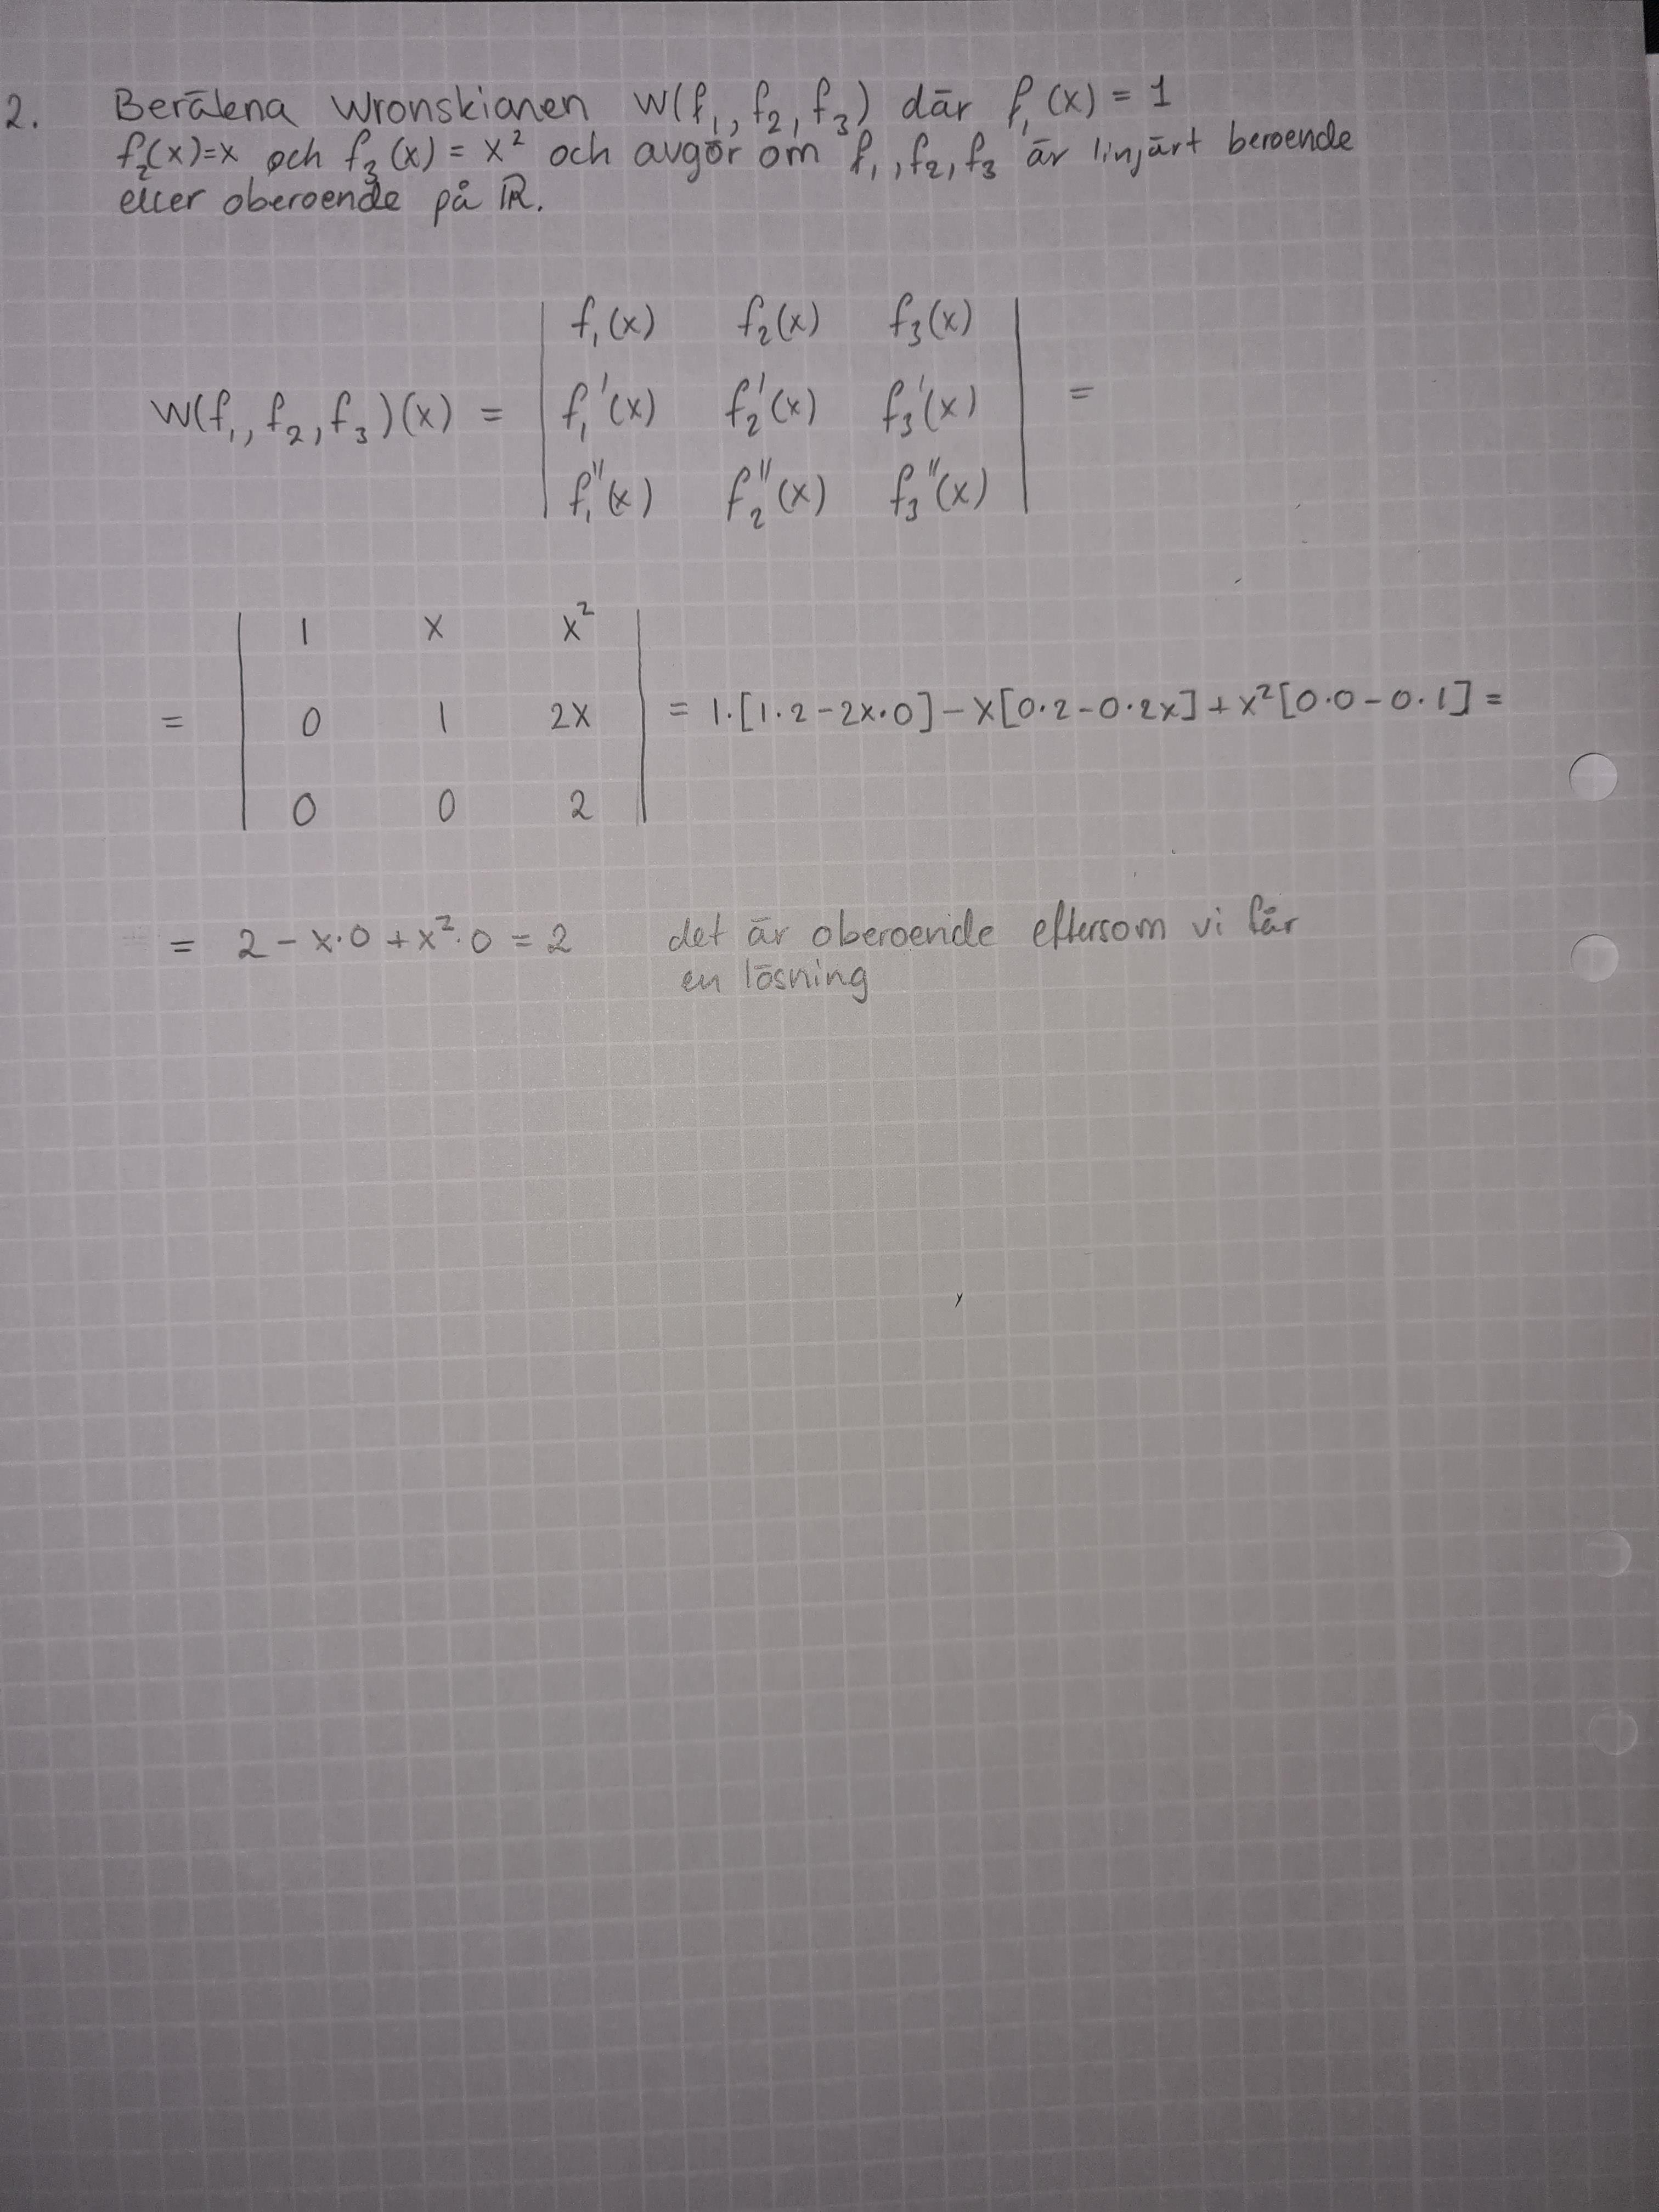 2. Beräkna Wronskianen W(f₁, f₂, f₃) där f₁(x) = 1
f₂(x)=x och f₃(x) = x² och avgör om f₁, f₂, f₃ är linjärt beroende
eller oberoende på ℝ.
W(f₁, f₂, f₃)(x) = | f₁(x) f₂(x) f₃(x) |
| f₁'(x) f₂'(x) f₃'(x) | =
| f₁''(x) f₂''(x) f₃''(x) |
| 1 x x² |
= | 0 1 2x | = 1·[1·2-2x·0] - x[0·2-0·2x] + x²[0·0-0·1] =
| 0 0 2 |
= 2 - x·0 + x²·0 = 2 det är oberoende eftersom vi får
en lösning